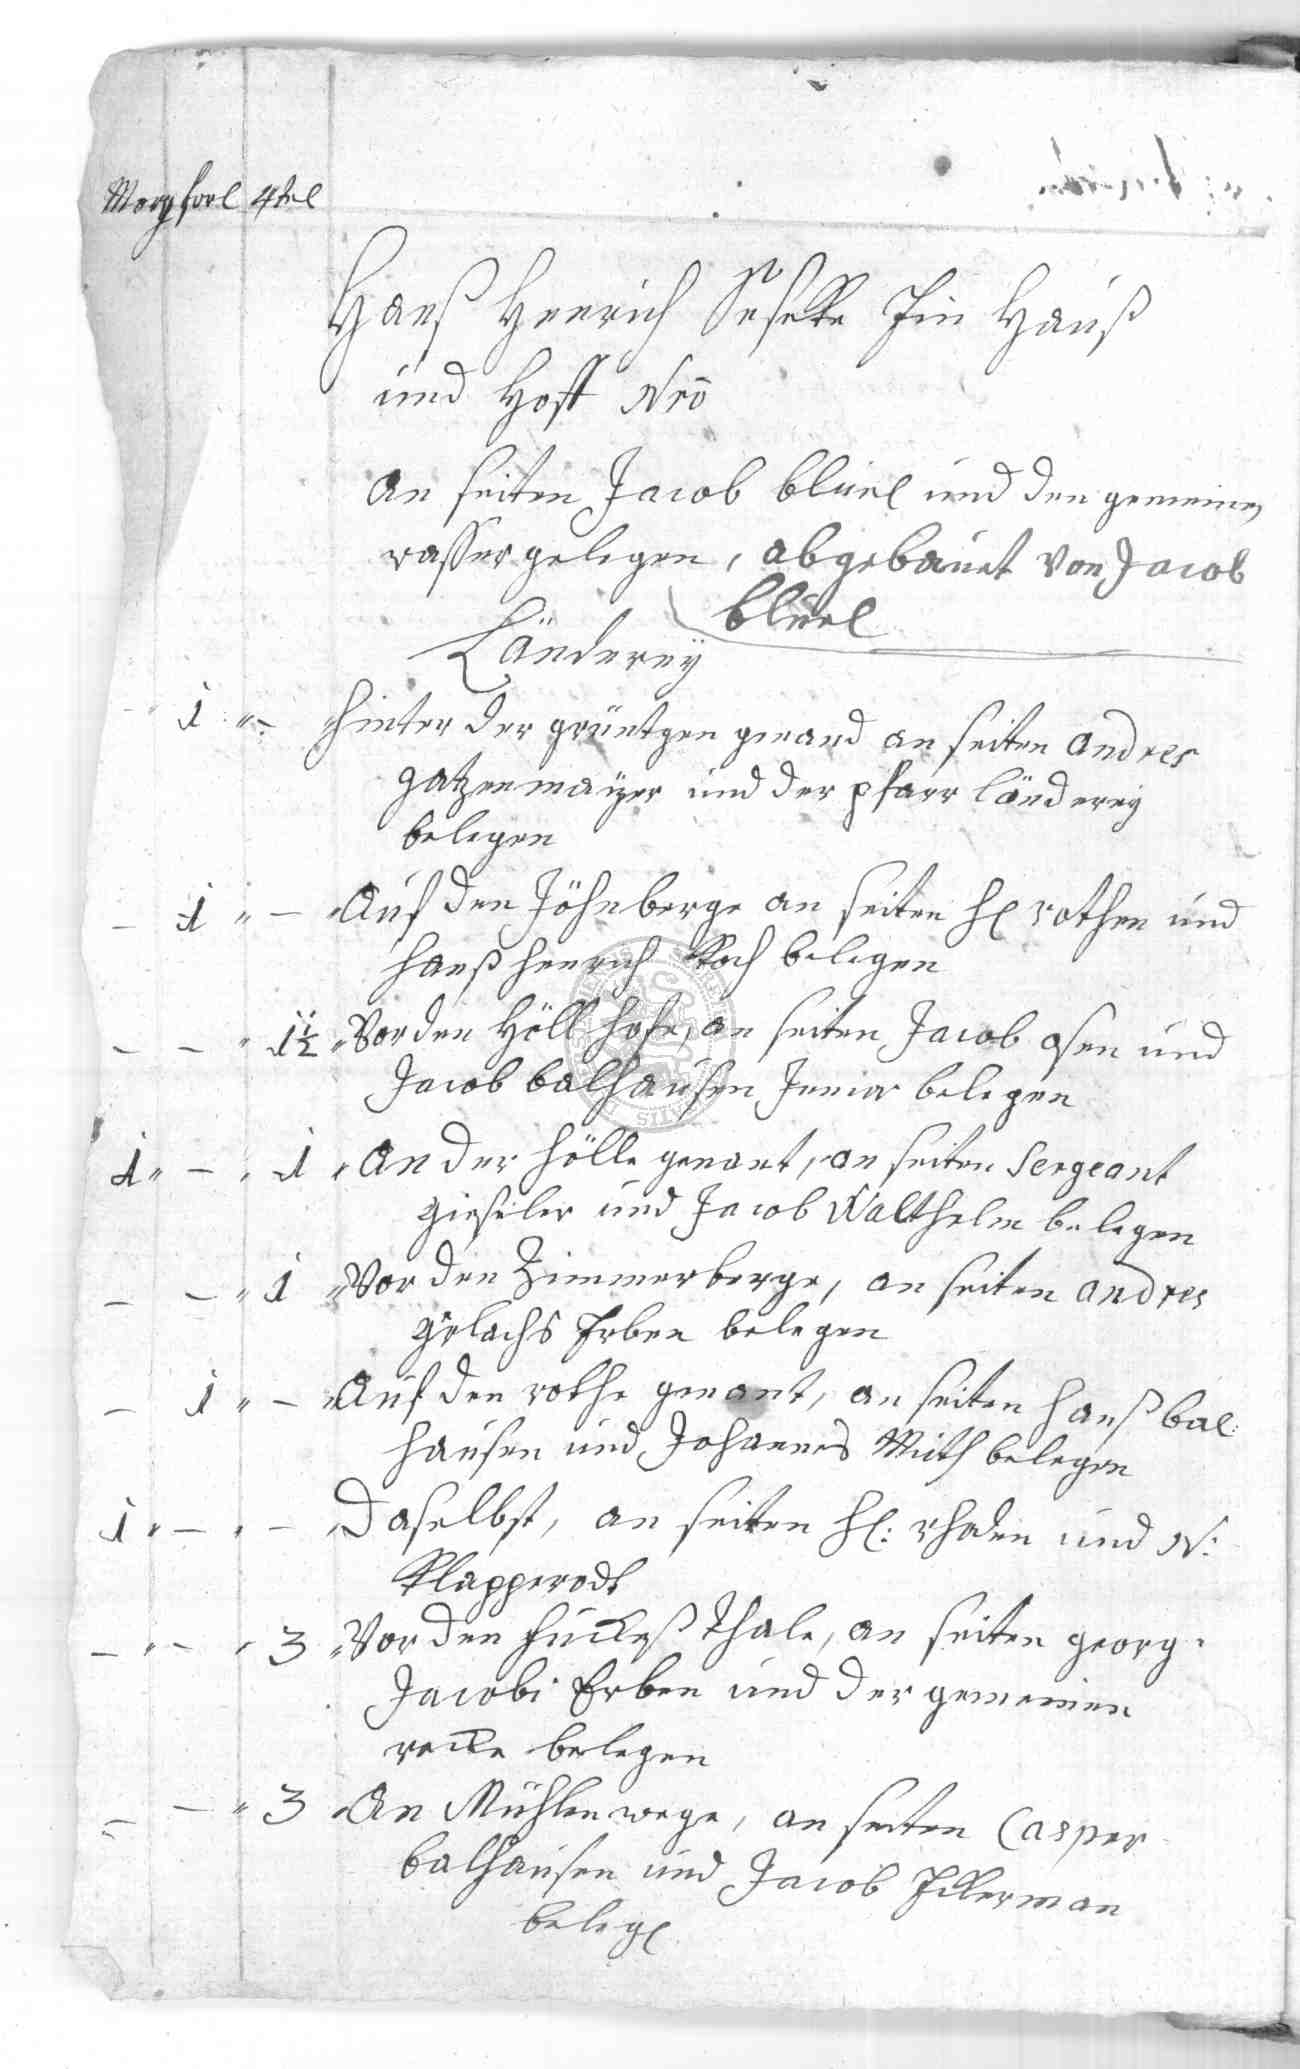 Morg forl 4tel
Hanß Henrich Ein Hauß
und Hoff Nro
an seiten Jacob bluel und den gemeinen
waßer gelegen, abgebauet von Jacob
bluel
Länderey
1 " - hinter der grüntgen genand an seiten andres
gatzenmayer und der pfarr länderey
belegen
- 1 " - Auf den Jöhnberge an seiten H rothen und
hanß henrich Koch belegen
- - " 1½ " Vor den Höll hofe, an seiten Jacob osen und
Jacob balhausen Junior belegen
1 " - " 1 " An der hölle genant, an seiten Sergeant
gieseler und Jacob Walthelm belegen
- - " 1 " Vor den Zimmerberge, an seiten andres
gerlachs Erben belegen
- 1 " - " Auf den rothe genant, an seiten hanß bal
hausen und Johannes Muth belegen
1 " - " - " Daselbst, an seiten H: rhoden und N:
Klapperodt
- " - " 3 " Vor den thale, an seiten georg
Jacobi Erben und der gemeinen
belegen
- - " 3 " An Mühlen wege, an seiten Casper
balhausen und Jacob Ickerman
beleg